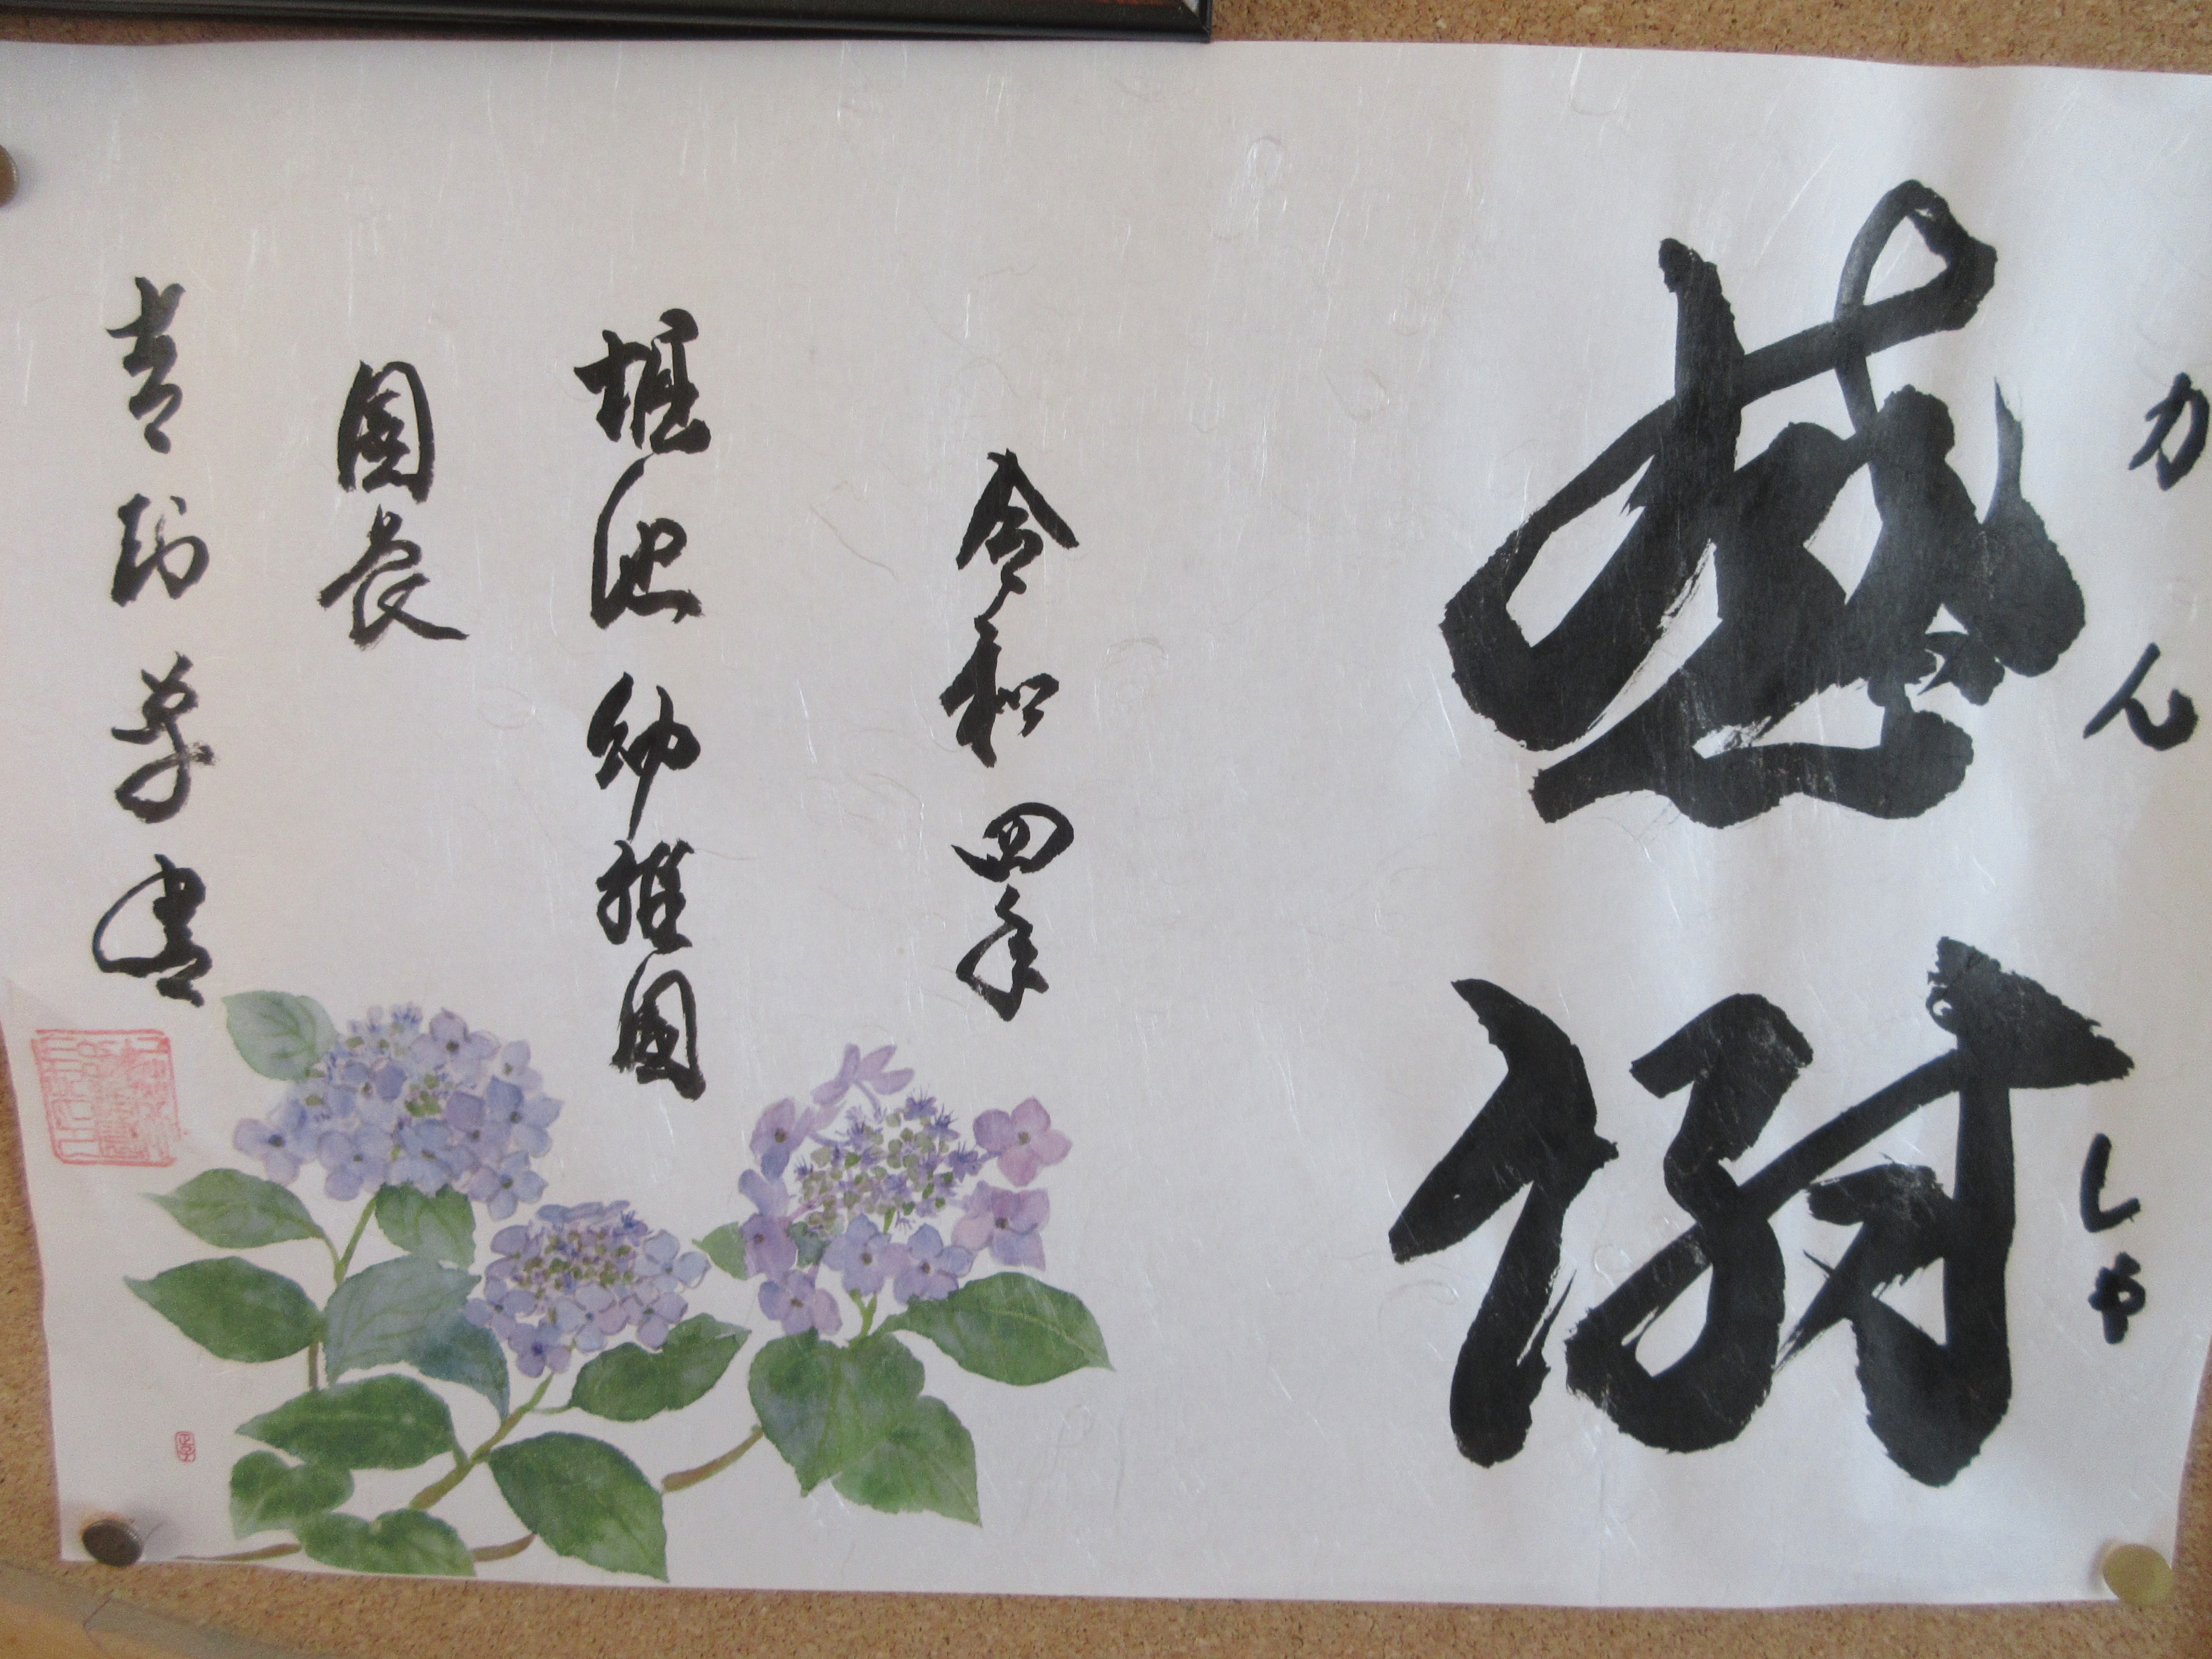 かんしゃ
感謝
令和四年
堀池幼稚園
園長